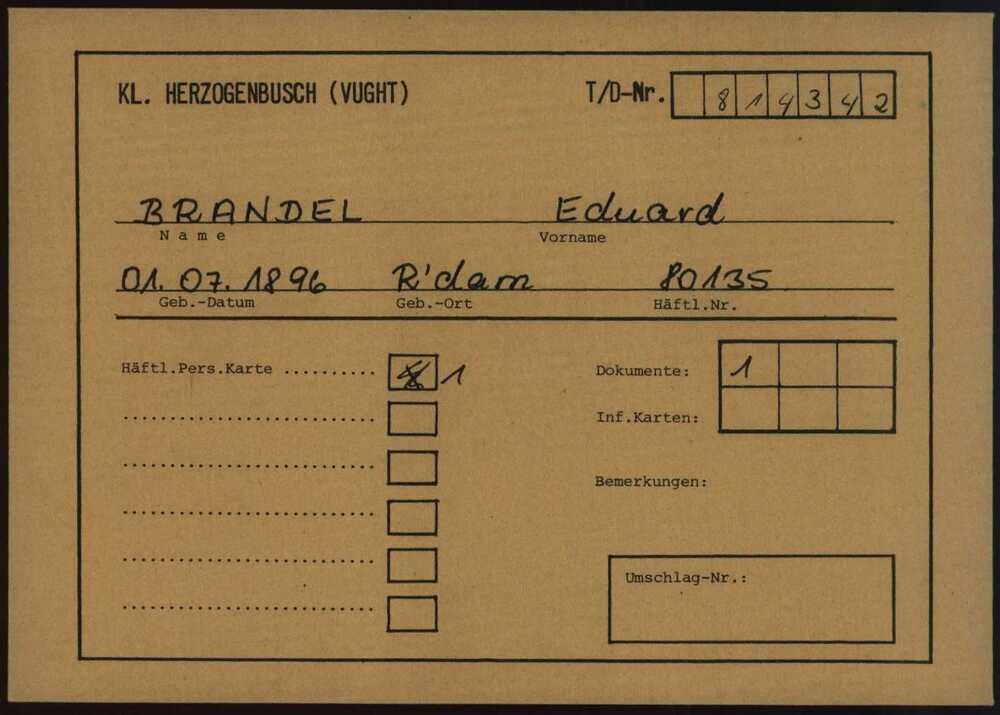 KL. HERZOGENBUSCH (VUGHT) T/D-Nr. 814342
BRANDEL Eduard
Name Vorname
01.07.1896 R'dam 80135
Geb.-Datum Geb.-Ort Häftl.Nr.
Häftl.Pers.Karte .......... 1
Dokumente: 1
Inf.Karten:
Bemerkungen:
Umschlag-Nr.: